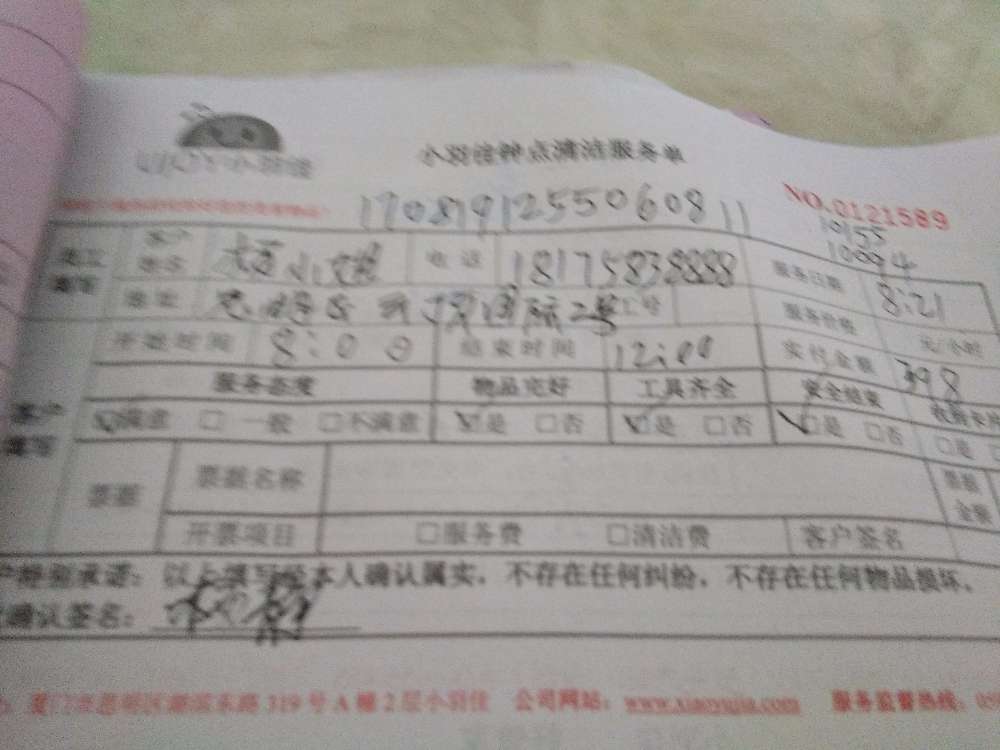 小羽佳
小羽佳钟点清洁服务单
NO.0121589
17081912550608 11
10155
10094
员工填写 客户姓名 小姐 电话 18175838888 服务日期 8:21
地址 国际2号 工号 服务价格 元/小时
开始时间 8:00 结束时间 12:00 实付金额 398
客户填写 服务态度 物品完好 工具齐全 安全结束
☑满意 □一般 □不满意 ☑是 □否 ☑是 □否 ☑是 □否 □是
票据 票据名称 票据金额
开票项目 □服务费 □清洁费 客户签名
承诺：以上填写经本人确认属实，不存在任何纠纷，不存在任何物品损坏。
确认签名：
厦门市思明区湖滨东路319号A幢2层小羽佳 公司网站：www.xiaoyujia.com 服务监督热线：059